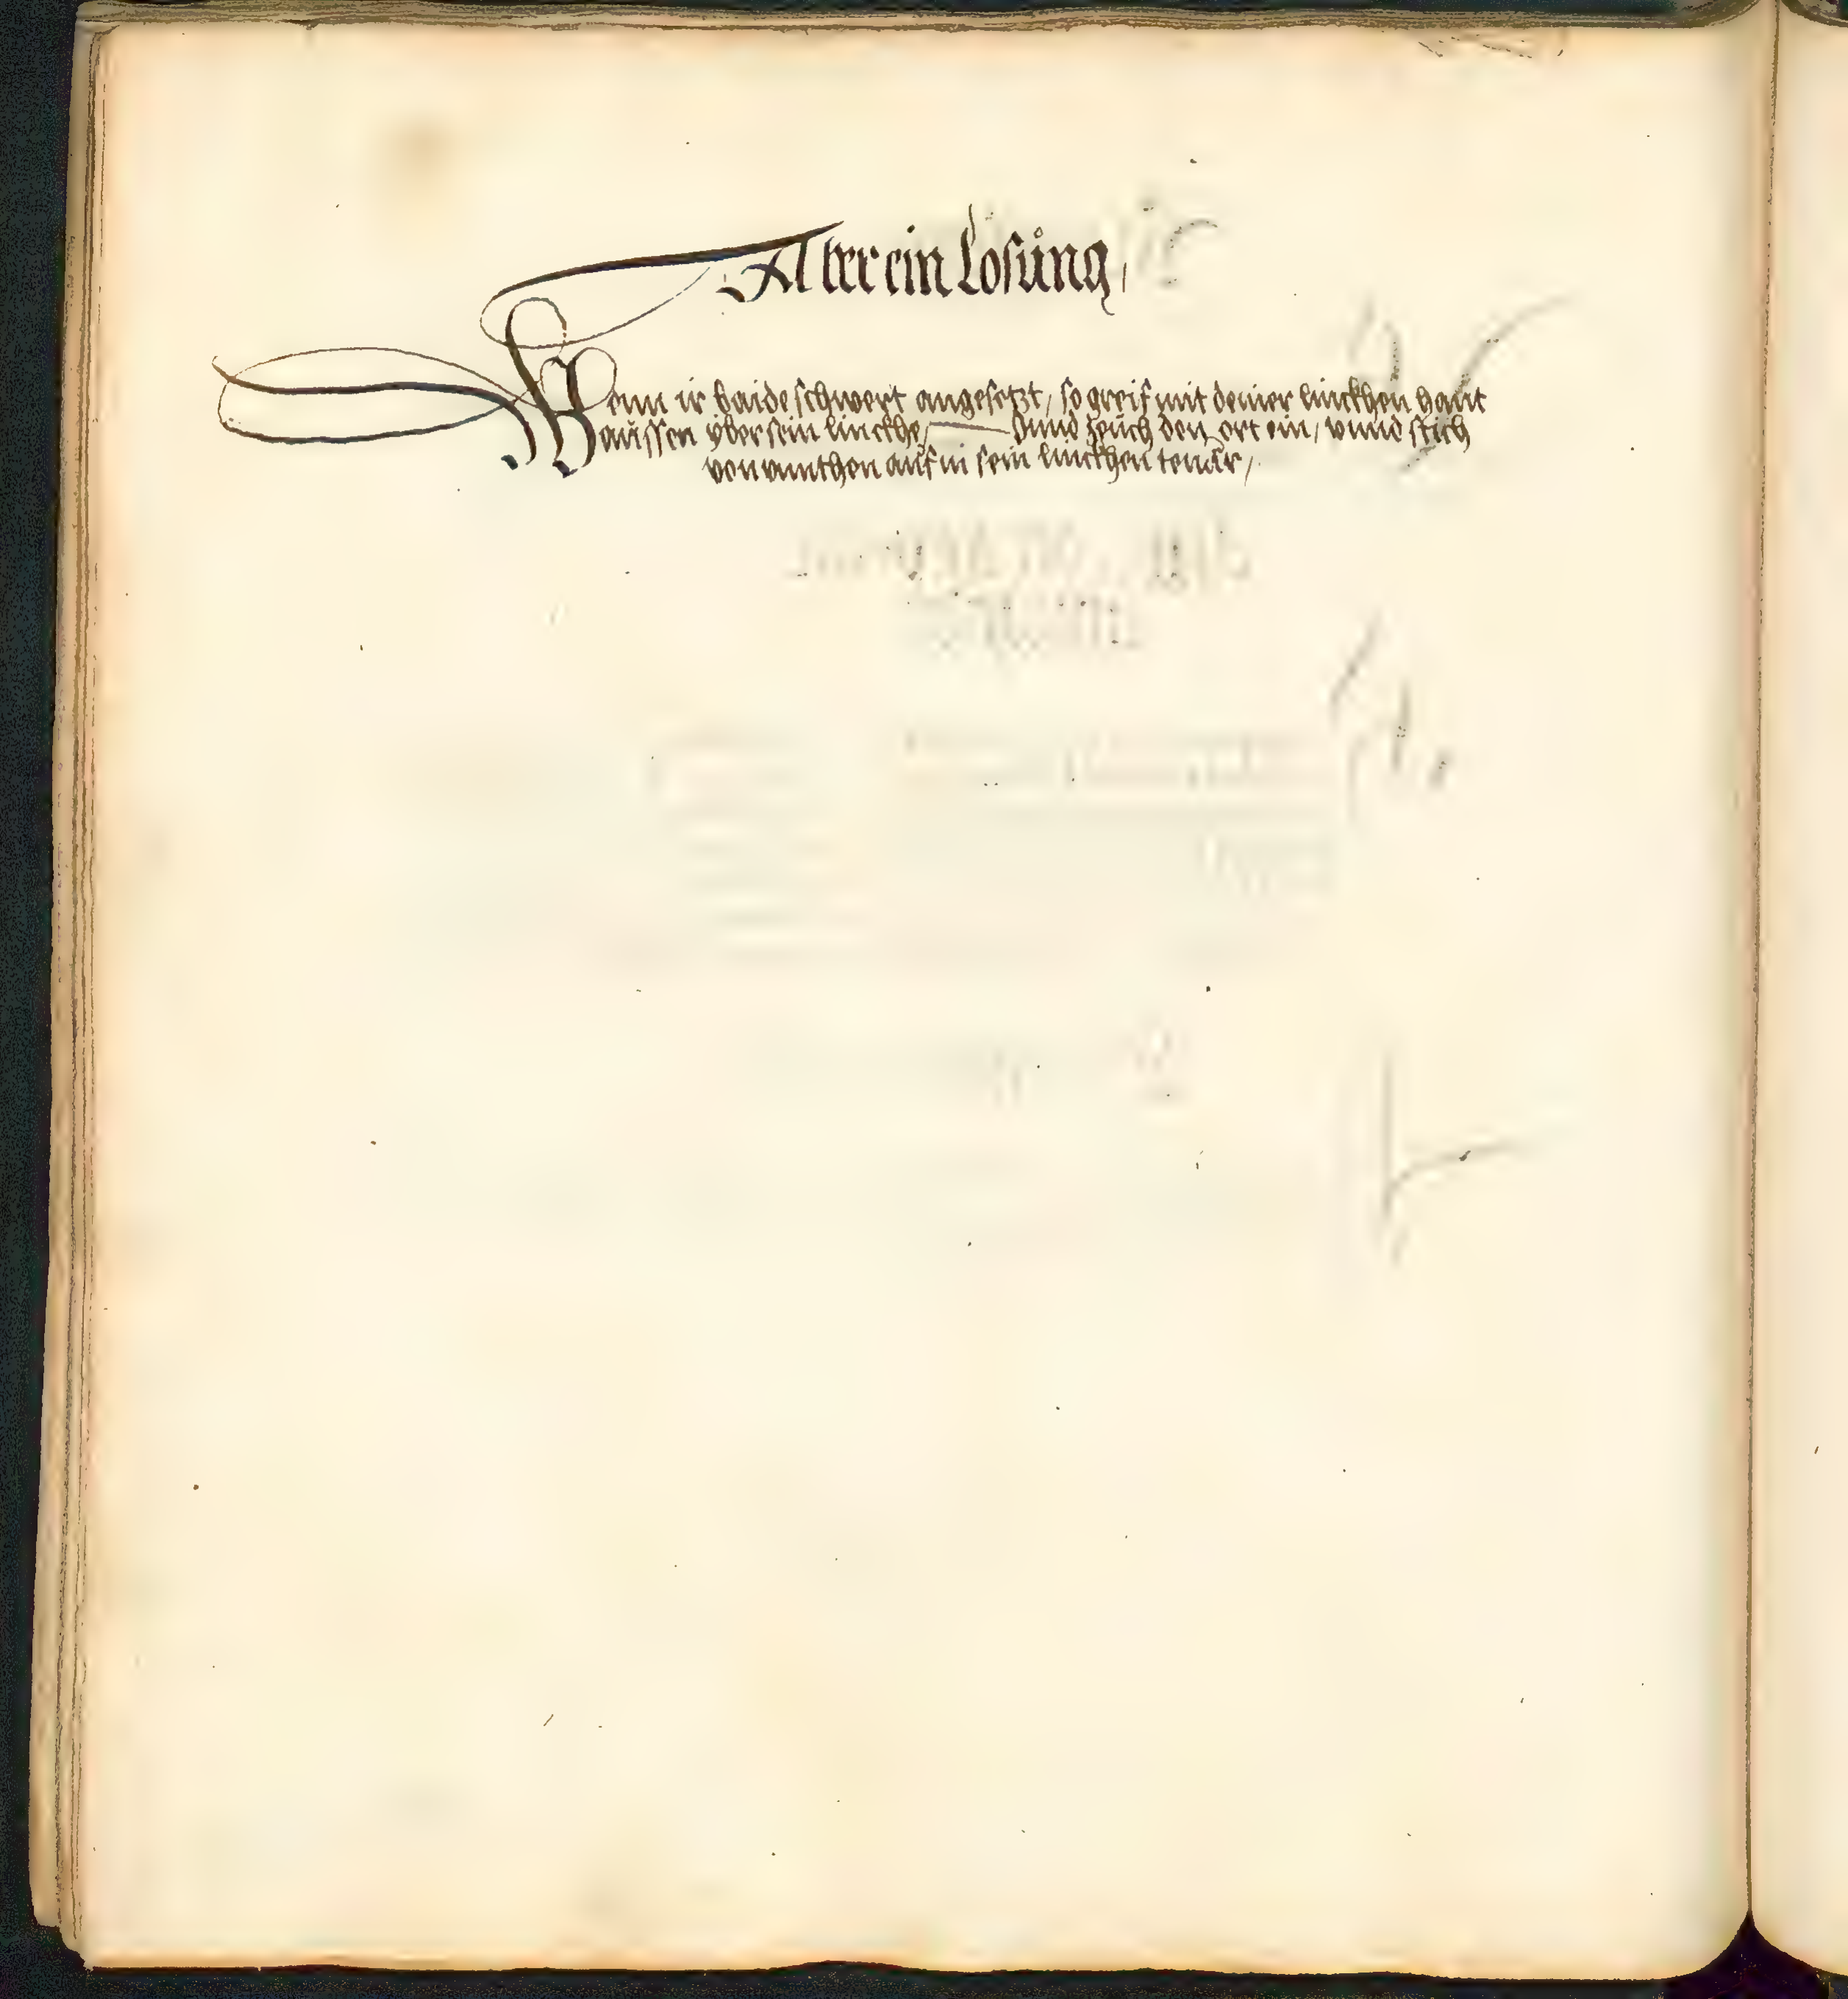 Aber ein losůng,
Wenn ir baide schwert angesetzt, so greif mit deiner linckhen hant
aůssen yber sein linckhe, vnnd zeůch den ort ein, vnnd stich
von vnnthen aůf in sein linckhen tenár,